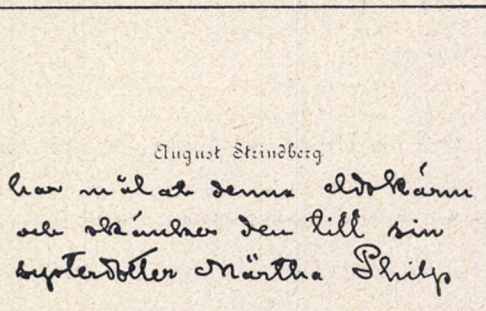 August Strindberg
har målat denna eldskärm
och skänker den till sin
systerdotter Märtha Philp